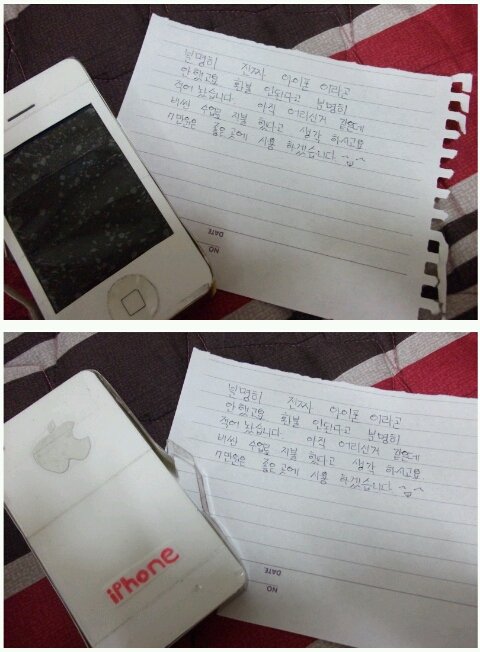 분명히 진짜 아이폰 이라고
안했고요 환불 안된다고 분명히
적어 놨습니다 아직 어리신거 같은데
비싼 수업료 지불 했다고 생각 하시고요
7만원은 좋은곳에 사용 하겠습니다 ^_^
DATE
NO
분명히 진짜 아이폰 이라고
안했고요 환불 안된다고 분명히
적어 놨습니다 아직 어리신거 같은데
비싼 수업료 지불 했다고 생각 하시고요
7만원은 좋은곳에 사용 하겠습니다 ^_^
DATE
NO
iPhone